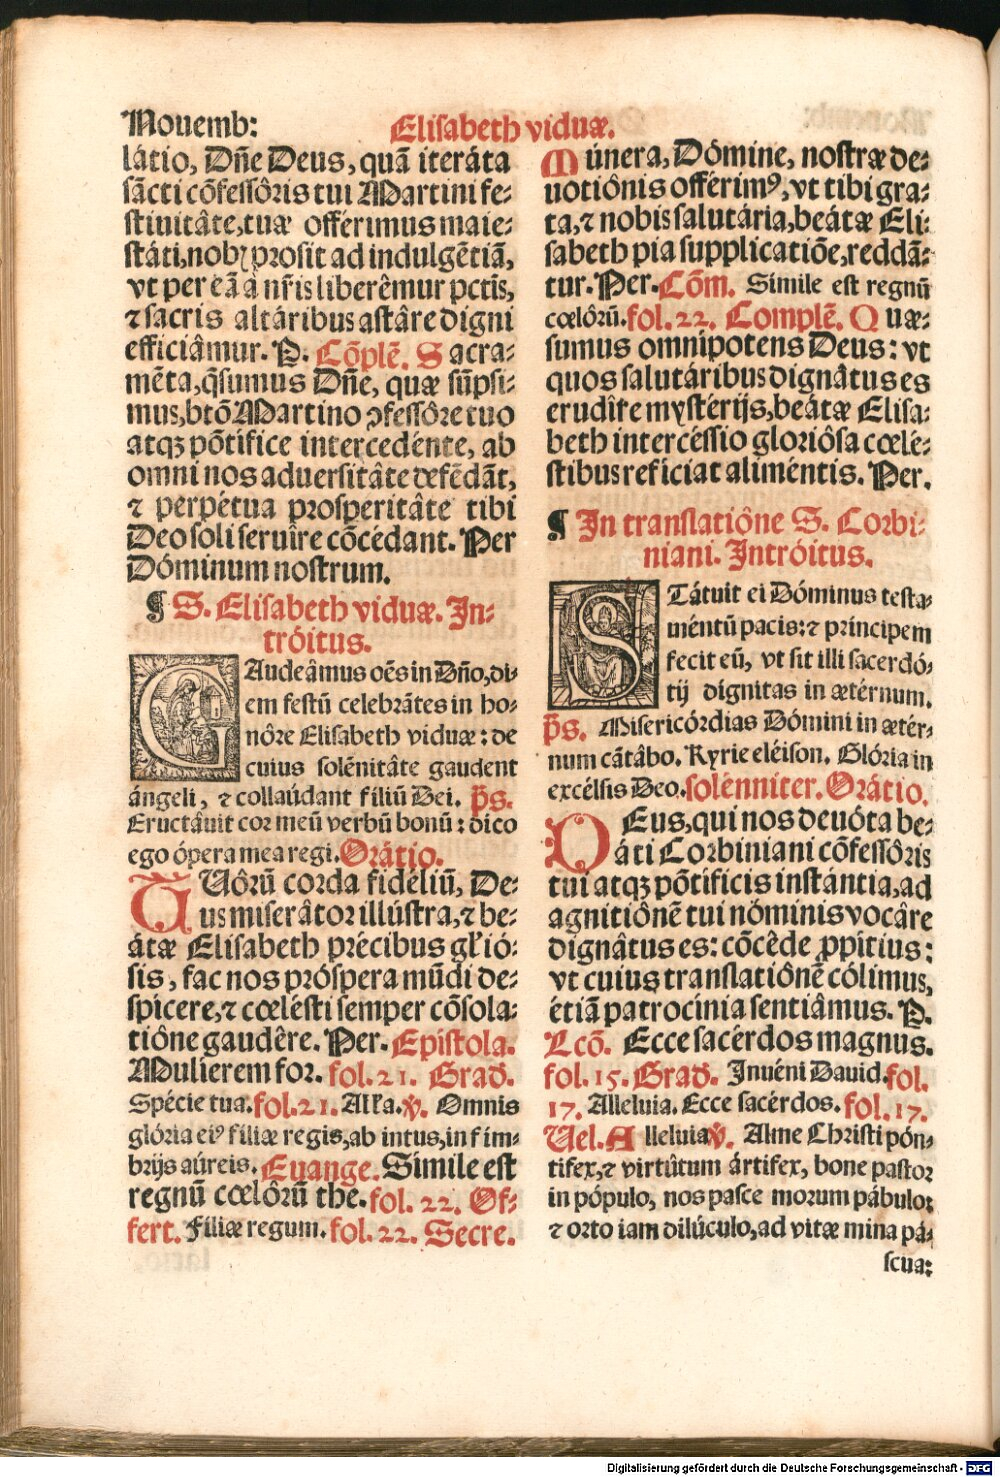 Nouemb:
Elisabeth viduæ.
látio, Dñe Deus, quã iteráta
sãcti cõfessôris tui Martini fe⸗
stiuitâte, tuæ offérimus maie⸗
státi, nobꝫ prosit ad indulgẽtiã,
vt per eã â nr̃is liberêmur pctĩs,
⁊ sacris altáribus astâre digni
efficiâmur. P. Cõplẽ. Sacra⸗
mẽta, q̃sumus Dñe, quæ sũpsi⸗
mus, btõ Martino ↄfessôre tuo
atqꝫ põtifice intercedénte, ab
omni nos aduersitâte defẽdãt,
⁊ perpétua prosperitâte tibi
Deo soli seruîre cõcédant. Per
Dóminum nostrum.
¶ S. Elisabeth viduæ. In⸗
tróitus.
GAudeâmus oẽs in Dño, di⸗
em festũ celebrãtes in ho⸗
nôre Elisabeth viduæ: de
cuius solẽnitâte gaudent
ángeli, ⁊ collaúdant filiũ Dei. p̃s.
Eructâuit cor meũ verbũ bonũ: dico
ego ópera mea regi. Orátio.
TUôrũ corda fidéliũ, De⸗
us miserâtor illústra, ⁊ be⸗
átæ Elisabeth précibus gl'ió⸗
sis, fac nos próspera mũdi de⸗
spícere, ⁊ cœlésti semper cõsola⸗
tiône gaudêre. Per. Epistola.
Mulierem for. fol. 21. Grad.
Spécie tua. fol. 21. Alľa. ℣. Omnis
glória eiꝰ filiæ regis, ab intus, in fím⸗
brijs aúreis. Euange. Símile est
regnũ cœlôrũ the. fol. 22. Of⸗
fert. Filiæ regum. fol. 22. Secre.
MÚnera, Dómine, nostræ de⸗
uotiônis offérimꝰ, vt tibi gra⸗
ta, ⁊ nobis salutária, beátæ Eli⸗
sabeth pia supplicatiõe, reddã⸗
tur. Per. Cõm. Simile est regnũ
cœlôrũ. fol. 22. Complẽ. Quæ⸗
sumus omnípotens Deus: vt
quos salutáribus dignâtus es
erudîre mystérijs, beátæ Elisa⸗
beth intercéssio gloriôsa cœlé⸗
stibus refíciat aliméntis. Per.
¶ In translatiône S. Corbi⸗
niani. Intróitus.
STátuit ei Dóminus testa⸗
méntũ pacis: ⁊ príncipem
fecit eũ, vt sit illi sacerdó⸗
tij dignitas in ætérnum.
p̃s. Misericórdias Dómini in ætér⸗
num cãtâbo. Kyrie eléison. Glória in
excélsis Deo. solénniter. Orátio.
DEus, qui nos deuóta be⸗
áti Corbiniani cõfessôris
tui atqꝫ põtíficis instántia, ad
agnitiônẽ tui nóminis vocâre
dignâtus es: cõcêde ꝓpítius:
vt cuius translatiônẽ cólimus,
étiã patrocínia sentiâmus. P.
Lcõ. Ecce sacérdos magnus.
fol. 15. Grad. Inuéni Dauid. fol.
17. Alleluia. Ecce sacérdos. fol. 17.
Uel. Alleluia ℣. Alme Christi pón⸗
tifex, ⁊ virtûtum ártifex, bone pastor
in pópulo, nos pasce morum pábulo:
⁊ orto iam dilúculo, ad vitæ mina pá⸗
scua:
Digitalisierung gefördert durch die Deutsche Forschungsgemeinschaft - DFG